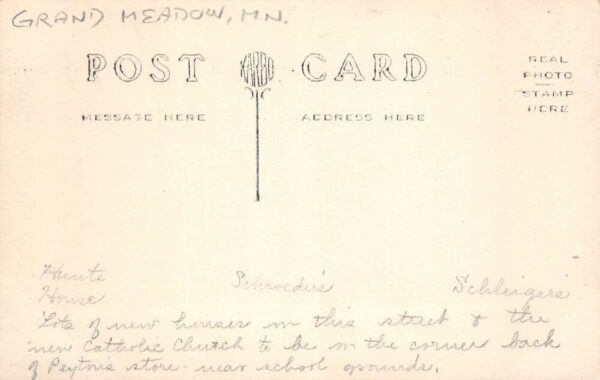 GRAND MEADOW, MN.
POST CARD
KARBO
REAL
PHOTO
STAMP
HERE
MESSAGE HERE
ADDRESS HERE
Hunts
House
Schroeder's
Schleiger's
Lots of new houses on this street & the
new Catholic Church to be on the corner back
of Peyton's store - near school grounds.